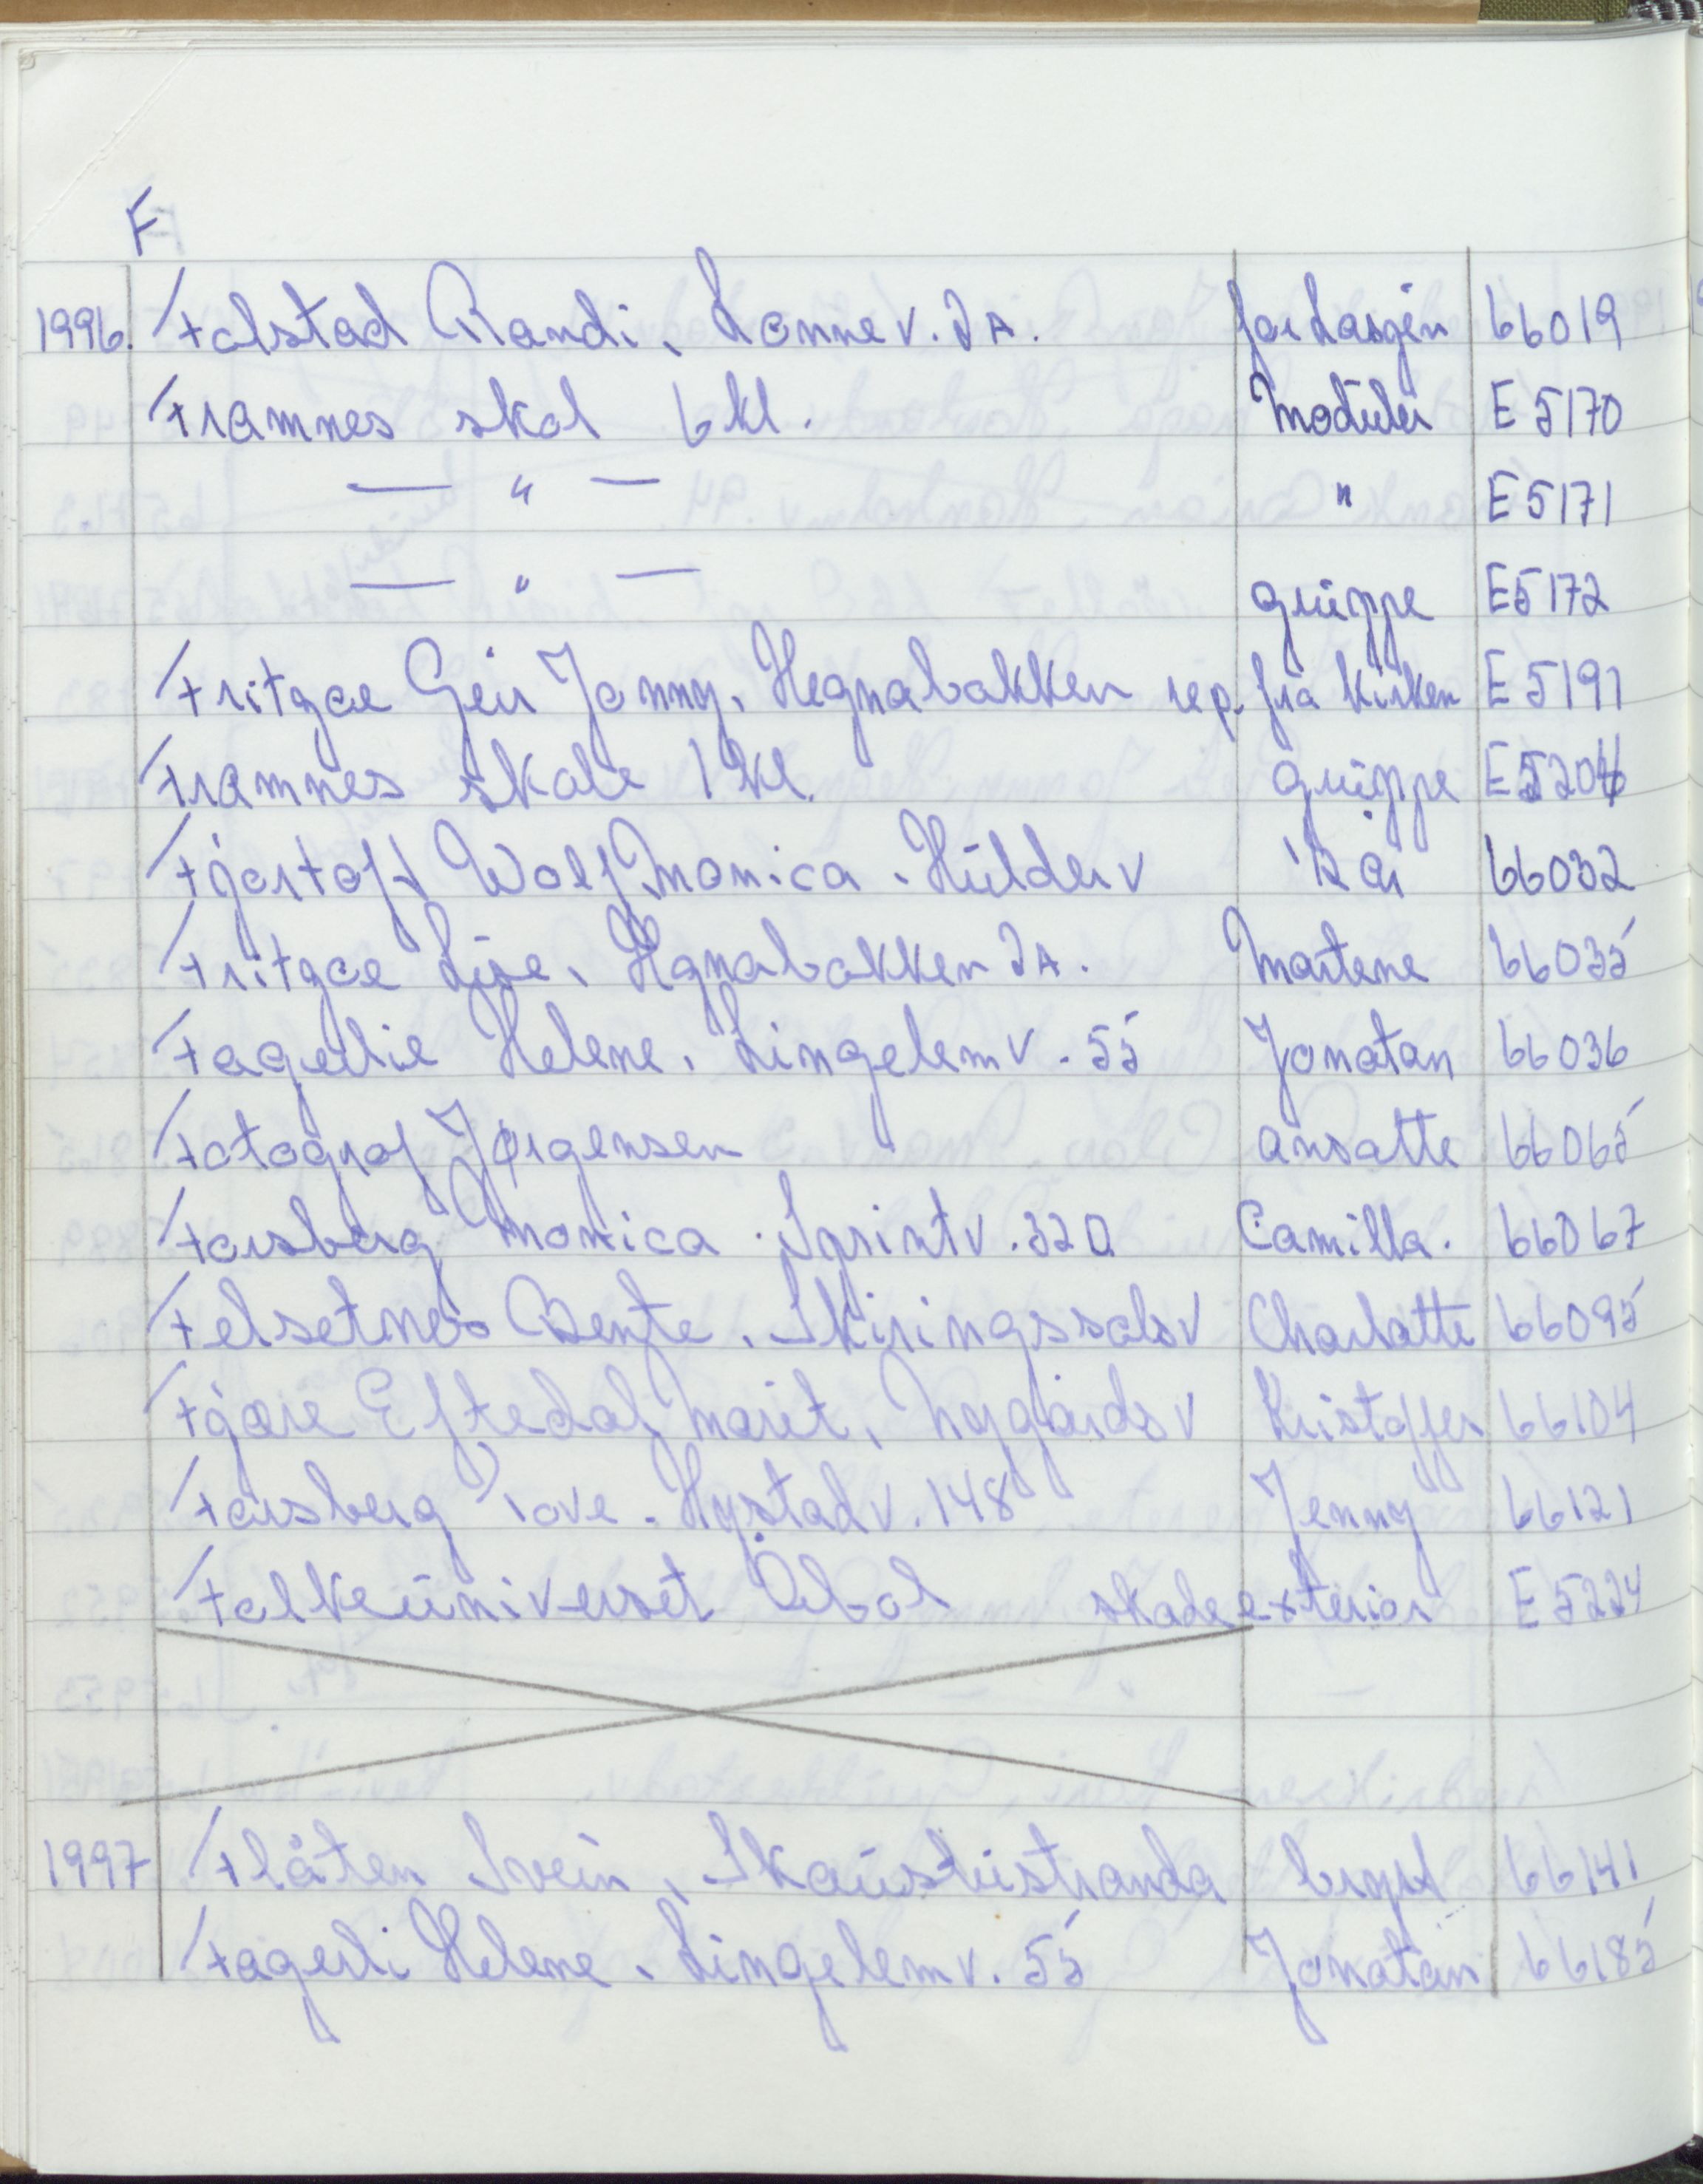 F
1996. Folstad Randi, Lønnev. 2A. for Lasgin 66019
Framnes skol 6 kl. Moduler E 5170
— " — " E 5171
— " — gruppe E5172
Fritzøe Geir Jonny, Hegnabakken rep. fra Kirken E 5191
Framnes skole 1 kl. gruppe E 5204
Fjørtoft Wolf Monica. Hulderv 12 år 66032
Fritzøe Lise, Hgnabakken 2A. Martene 66035
Fagerlie Helene, Lingelemv. 55 Jonatan 66036
Fotograf Jørgensen ansatte 66065
Forsberg Monica. Sprintv. 32D Camilla. 66067
Felsetnes Bente. Skiringssalsv Charlotte 66095
Fjære Eftedal Marit, Nygårdsv Kristoffer 66104
Forsberg Tove. Hystadv. 148 Jenny 66121
Folkeuniverset skade exteriør E 5224
1997 Flåten Svein, bryst 66141
Fagerli Helene. Lingelemv. 55 Jonatan 66185